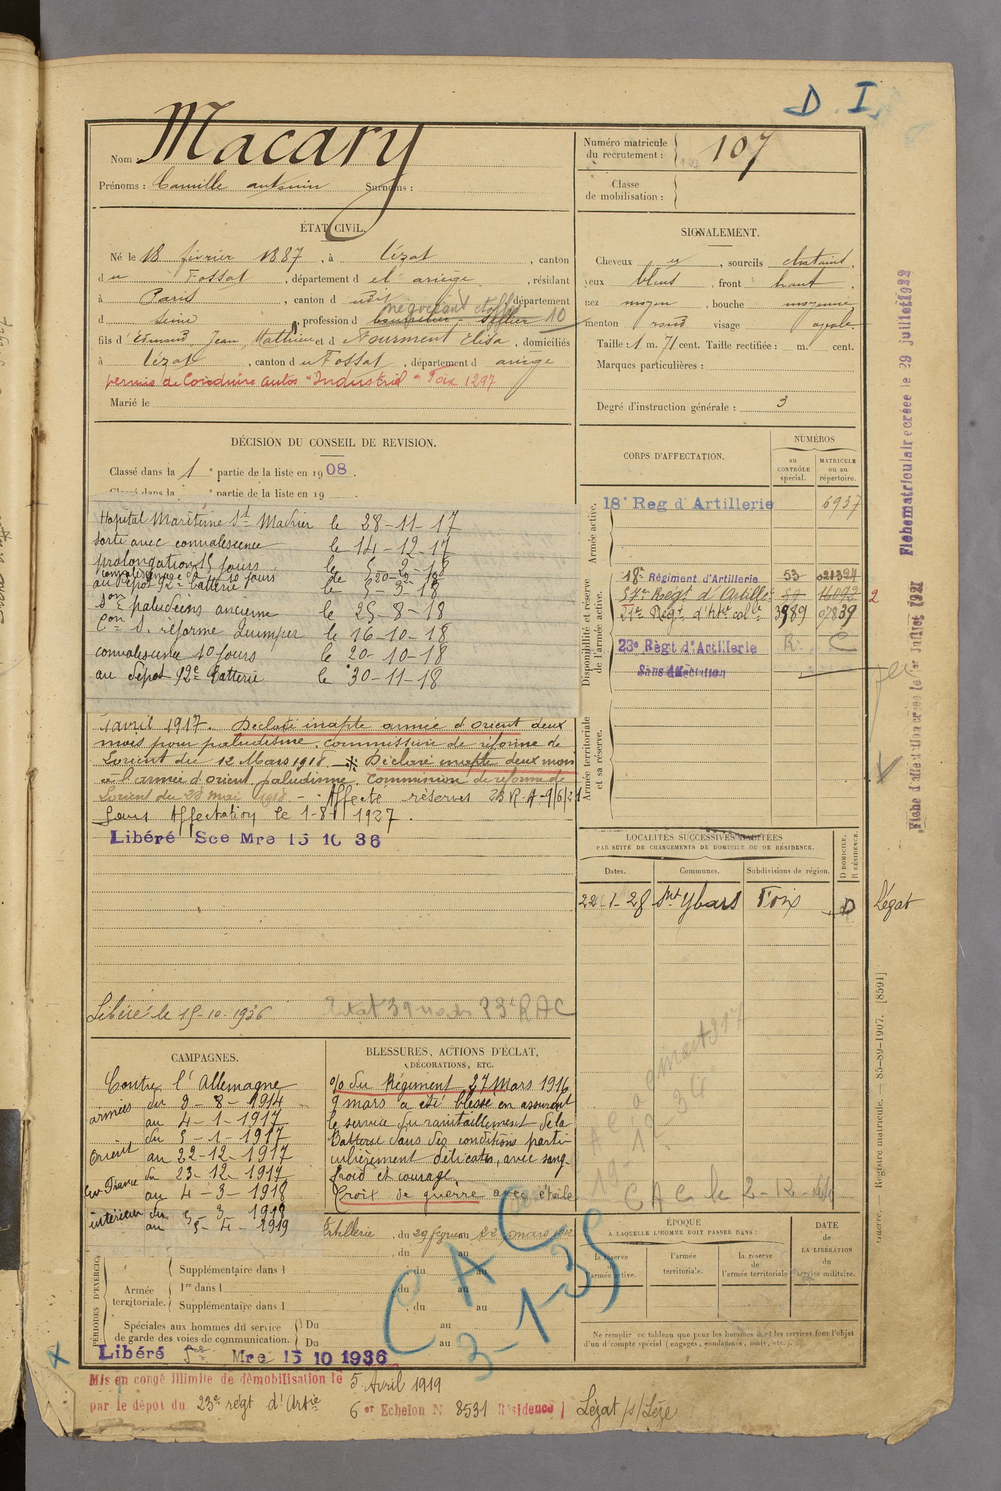 D. I
Nom : Macary
Prénoms : Camille antonin Surnoms :
Numéro matricule du recrutement : 107
Classe de mobilisation :
ÉTAT CIVIL.
Né le 18 février 1887, à Lézat, canton
du Fossat, département de l'ariège, résidant
à Paris, canton d udt, département
d Seine, profession d négociant 10
fils d'Edmond, Jean, Mathieu et d Nourment Elisa, domiciliés
à Lézat, canton du Fossat, département d ariège
permis de Conduire autos "Industriel" Foix 1297
Marié le
SIGNALEMENT.
Cheveux et, sourcils chatains,
yeux bleus, front haut,
nez moyen, bouche moyenne
menton rond visage ovale
Taille : 1 m. 71 cent. Taille rectifiée : m. cent.
Marques particulières :
Degré d'instruction générale : 3
DÉCISION DU CONSEIL DE REVISION.
Classé dans la 1e partie de la liste en 1908.
Classé dans la partie de la liste en 19
Hopital Maritime St Mandrier le 28-11-17
sorti avec convalescence le 14-12-17
prolongation 15 jours le 5-2-18
convalescence 10 jours
au Dépôt 92e batterie le 5-3-18
paludéins ancienne le 25-8-18
Con D. réforme Quimper le 16-10-18
convalescence 10 jours le 20-10-18
au Dépot 92e Batterie le 30-11-18
1 avril 1917. Déclaré inapte armée d'orient deux
mois pour paludisme. commission de réforme de
Lorient du 12 Mars 1918. * Déclaré inapte deux mois
à l'armée d'orient paludisme Commission de réforme de
Lorient du 28 mai 1918 - Affecté réserves 23 R.A - 9/6/21
Sans Affectation le 1-8-1927.
Libéré Sce Mre 15 10 36
Libéré le 15-10-1936
23e RAC
CORPS D'AFFECTATION.
NUMÉROS
au CONTRÔLE spécial.
MATRICULE ou au répertoire.
Armée active.
18e Reg d'Artillerie 6937
Disponibilité et réserve de l'armée active.
18e Régiment d'Artillerie 53 021324
57e Regt d'Artillie
Regt d'Arte colle 3989 07839
23e Régt d'Artillerie R. C
Sans affectation
Armée territoriale et sa réserve.
LOCALITÉS SUCCESSIVES HABITÉES
PAR SUITE DE CHANGEMENTS DE DOMICILE OU DE RÉSIDENCE.
Dates. Communes. Subdivisions de région. D DOMICILE. R RÉSIDENCE.
22-1-28 St Ybars Foix D Lézat
CAMPAGNES.
Contre l'Allemagne
armées du 9-8-1914
au 4-1-1917
Orient du 5-1-1917
au 22-12-1917
en France du 23-12-1917
au 4-3-1918
intérieur du 5-3-1918
au 5-4-1919
BLESSURES, ACTIONS D'ÉCLAT,
DÉCORATIONS, ETC.
O/o du Régiment 27 Mars 1916
9 mars a été blessé en assurant
le service du ravitaillement de la
Batterie dans des conditions parti-
culièrement délicates, avec sang-
froid et courage.
Croix de guerre avec étoile
C A C le 2-2-
PÉRIODES D'EXERCICE
Artillerie, du 29 février au 22 mars 1912
du au
Armée territoriale.
Supplémentaire dans l du au
1re dans l du au
Supplémentaire dans l du au
Spéciales aux hommes du service de garde des voies de communication.
Du au
Du au
C A C
3-1-35
ÉPOQUE
À LAQUELLE L'HOMME DOIT PASSER DANS :
la réserve de l'armée active.
l'armée territoriale.
la réserve de l'armée territoriale
DATE de LA LIBÉRATION du service militaire.
Ne remplir ce tableau que pour les hommes dont les services font l'objet
d'un décompte spécial (engagés, condamnés, omis, etc.).
Libéré Sce Mre 15 10 1936
Mis en congé illimité de démobilisation le 5 Avril 1919
par le dépôt du 23e régt d'Artie 6er Echelon N° 8531 Résidence Lézat /s/ Lèze
Fiche matriculaire créée le 29 juillet 1922
Fiche d'affectation créée le 1er Juillet 1921
Registre matricule. — 85-89-1907. [8591]